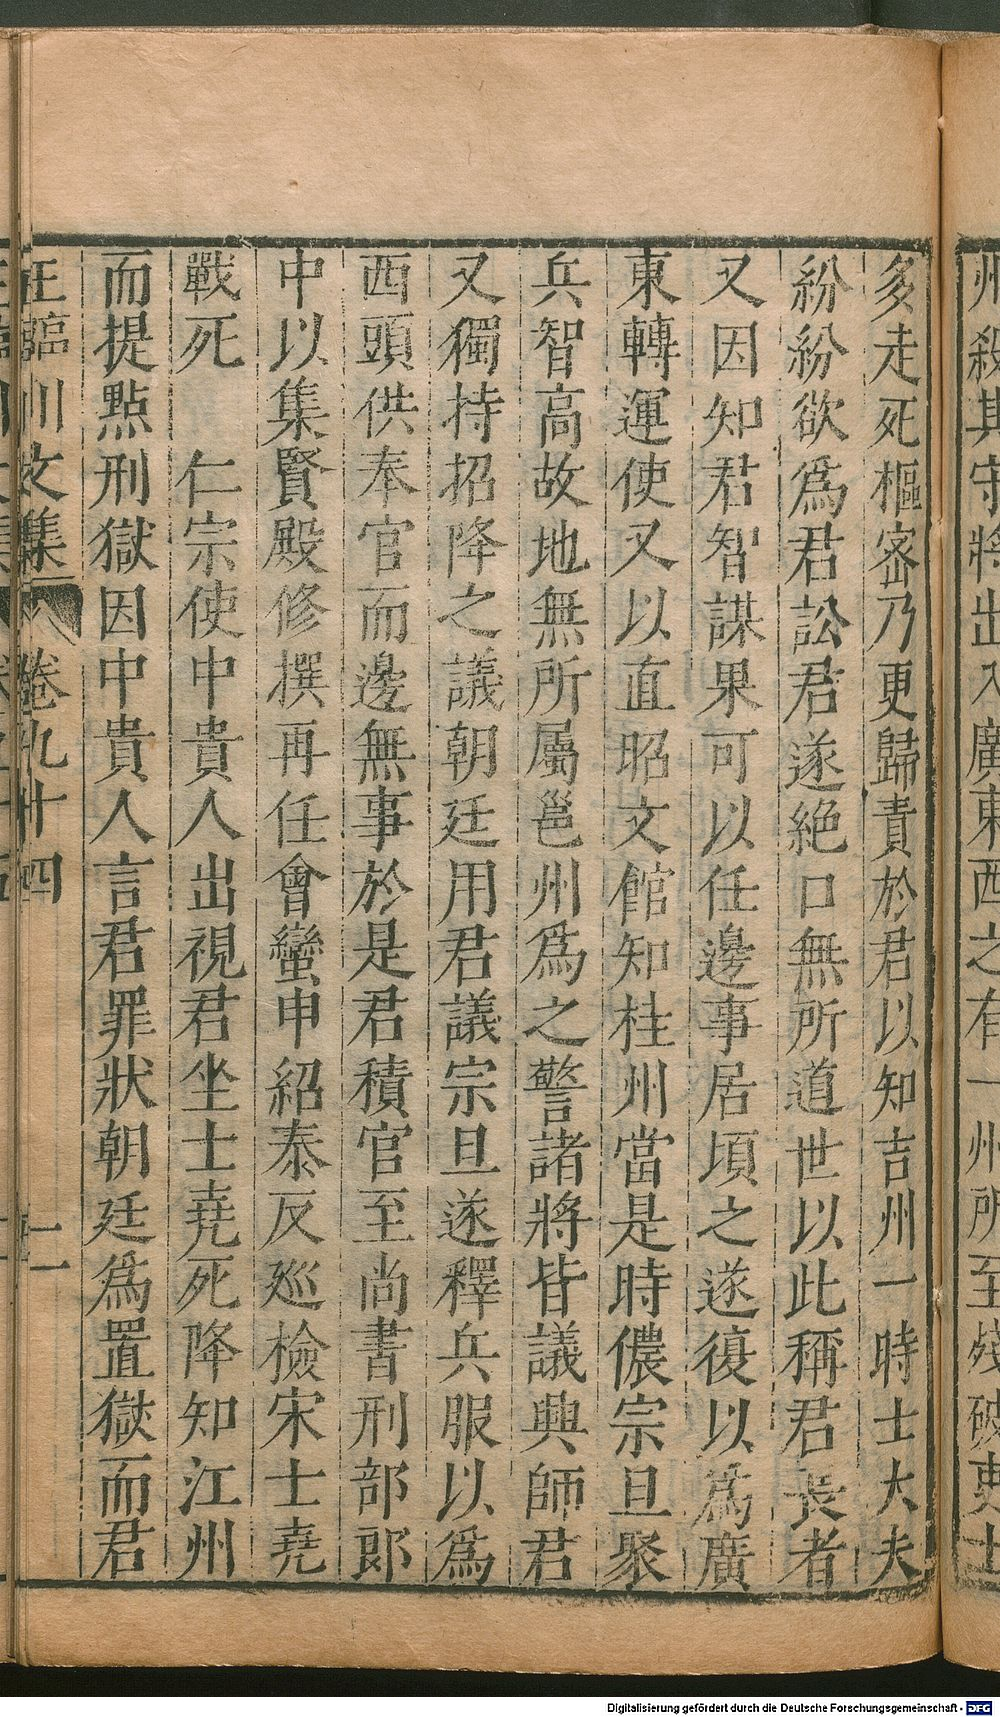 州殺其守將出入廣東西之有一州所至殘破吏士
多走死樞密乃更歸責於君以知吉州一時士大夫
紛紛欲爲君訟君遂絕口無所道世以此稱君長者
又因知君智謀果可以任邊事居頃之遂復以爲廣
東轉運使又以直昭文館知桂州當是時儂宗旦聚
兵智高故地無所屬邕州爲之警諸將皆議興師君
又獨持招降之議朝廷用君議宗旦遂釋兵服以爲
西頭供奉官而邊無事於是君積官至尚書刑部郎
中以集賢殿修撰再任會蠻申紹泰反巡檢宋士堯
戰死　仁宗使中貴人出視君坐士堯死降知江州
而提點刑獄因中貴人言君罪狀朝廷爲置獄而君
王臨川文集 卷九十四 二
Digitalisierung gefördert durch die Deutsche Forschungsgemeinschaft - DFG